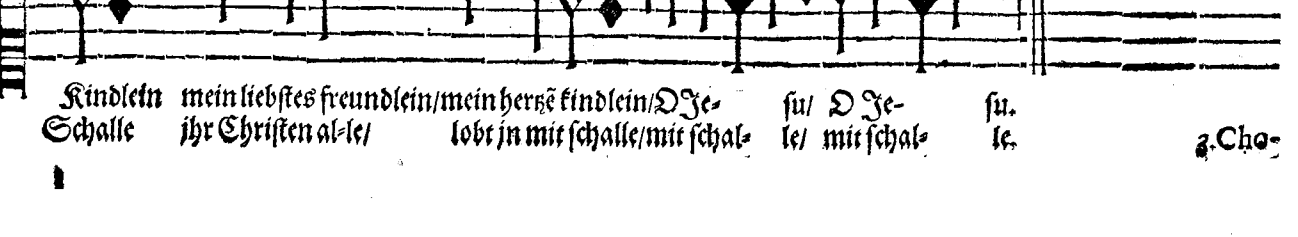 Kindlein mein liebstes freundlein/mein hertzẽ kindlein/O Je- su/ O Je- su.
Schalle jhr Christen al-le/ lobt jn mit schalle/mit schal- le/ mit schal- le.
2.Cho-